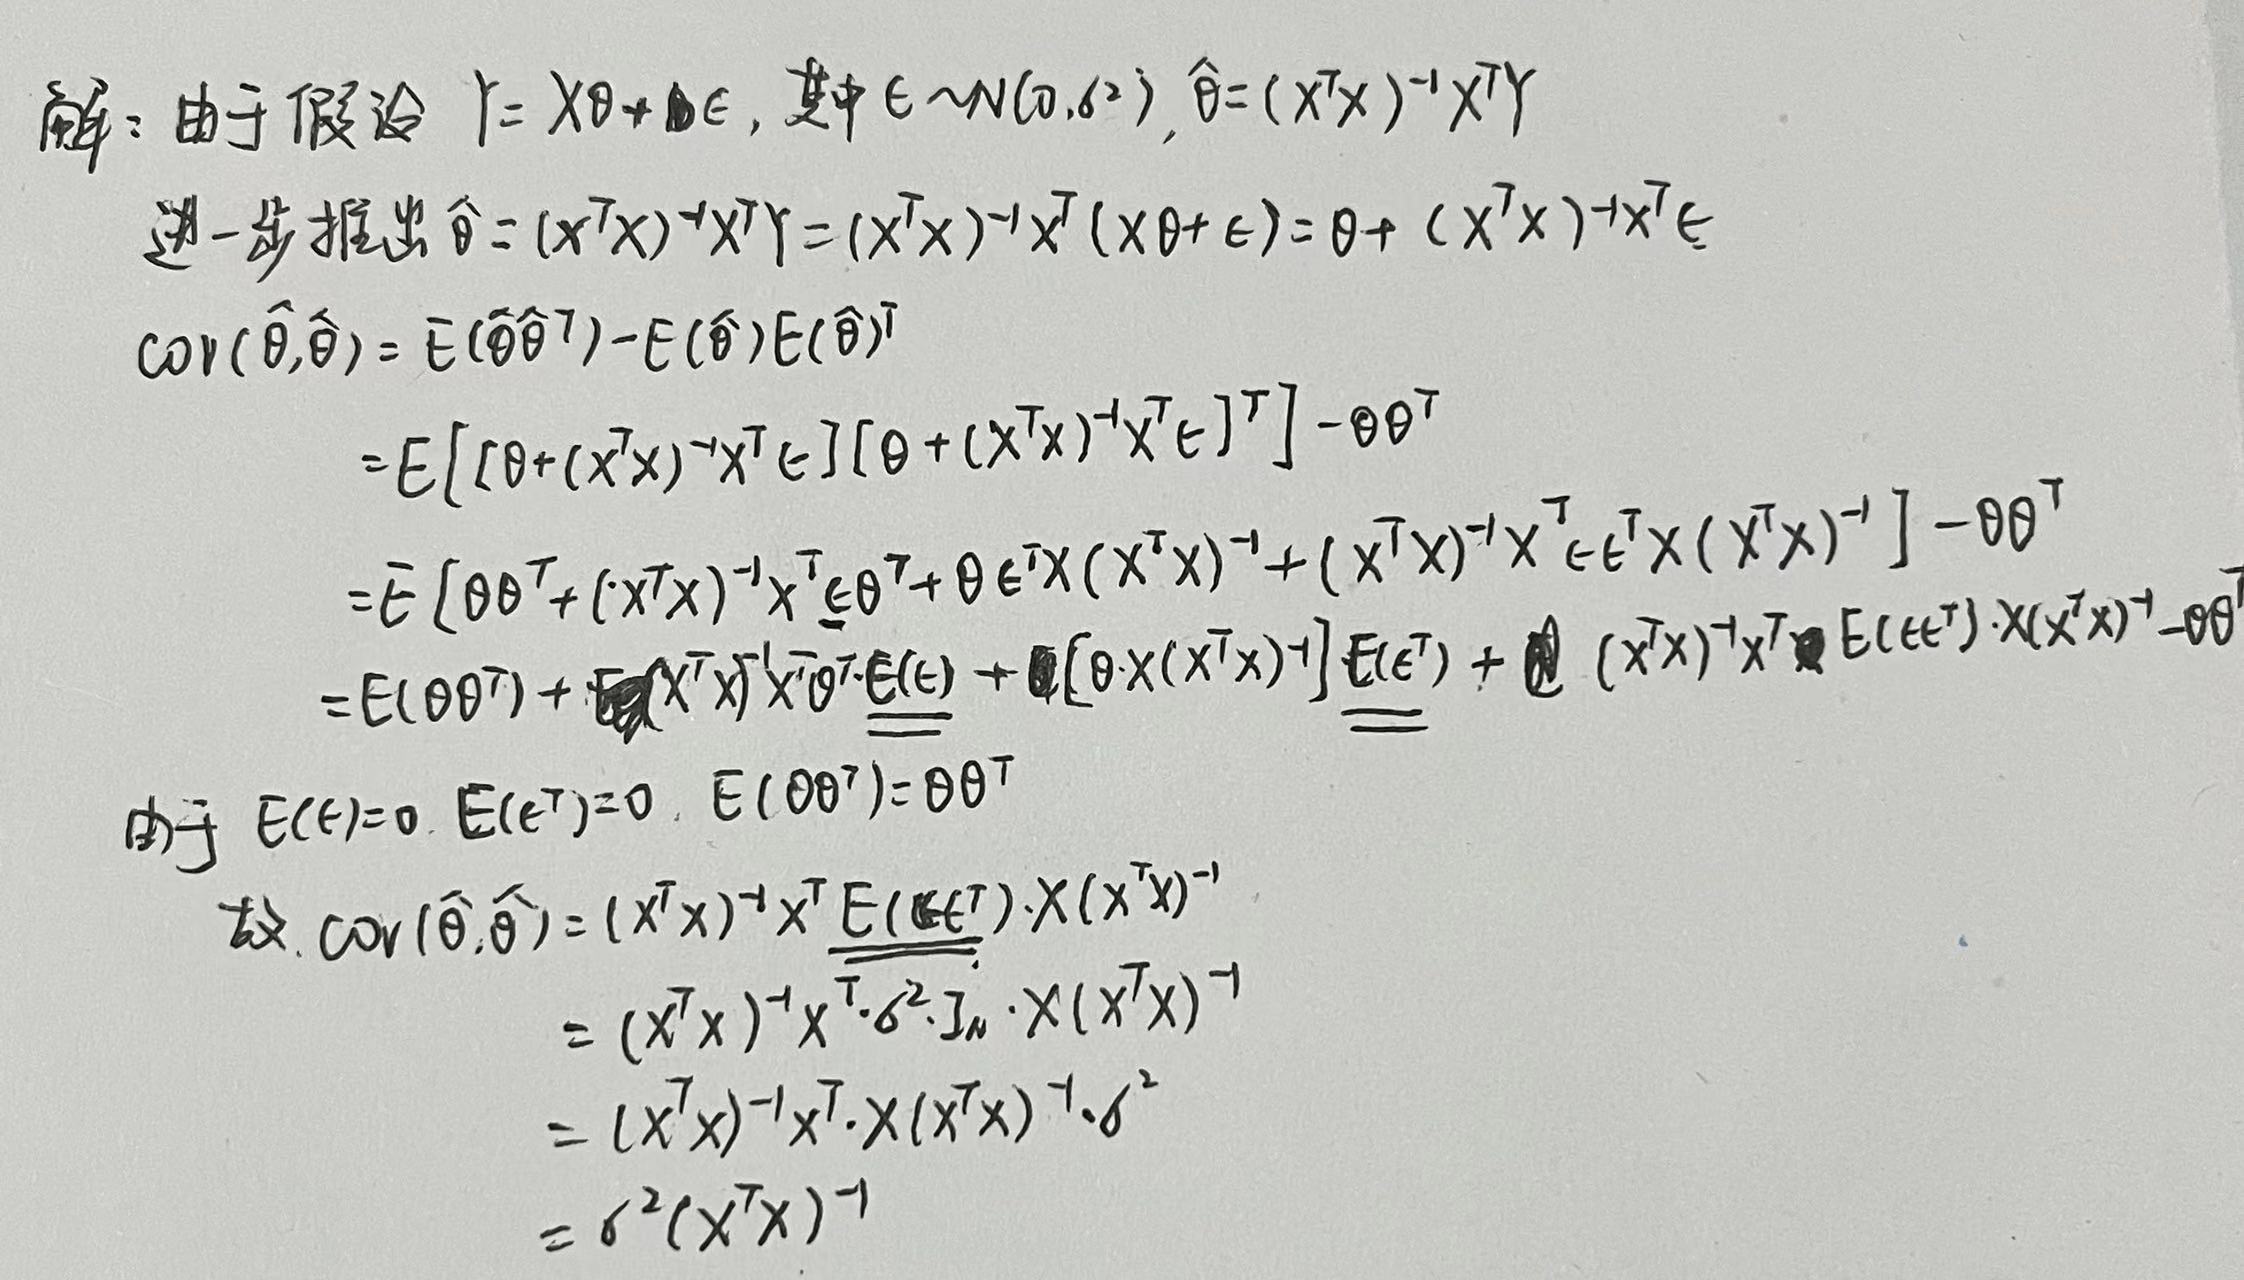 解：由于假设 Y=Xθ+ϵ, 其中 ϵ~N(0,σ²), θ̂=(XᵀX)⁻¹XᵀY
进一步推出 θ̂=(XᵀX)⁻¹XᵀY=(XᵀX)⁻¹Xᵀ(Xθ+ϵ)=θ+(XᵀX)⁻¹Xᵀϵ
cov(θ̂,θ̂)=E(θ̂θ̂ᵀ)-E(θ̂)E(θ̂)ᵀ
=E[[θ+(XᵀX)⁻¹Xᵀϵ][θ+(XᵀX)⁻¹Xᵀϵ]ᵀ]-θθᵀ
=E[θθᵀ+(XᵀX)⁻¹Xᵀϵθᵀ+θϵᵀX(XᵀX)⁻¹+(XᵀX)⁻¹XᵀϵϵᵀX(XᵀX)⁻¹]-θθᵀ
=E(θθᵀ)+(XᵀX)⁻¹Xᵀθᵀ·E(ϵ)+[θ·X(XᵀX)⁻¹]E(ϵᵀ)+(XᵀX)⁻¹XᵀE(ϵϵᵀ)·X(XᵀX)⁻¹-θθᵀ
由于 E(ϵ)=0. E(ϵᵀ)=0. E(θθᵀ)=θθᵀ
故. cov(θ̂,θ̂)=(XᵀX)⁻¹XᵀE(ϵϵᵀ)·X(XᵀX)⁻¹
=(XᵀX)⁻¹Xᵀ·σ²·I_N·X(XᵀX)⁻¹
=(XᵀX)⁻¹Xᵀ·X(XᵀX)⁻¹·σ²
=σ²(XᵀX)⁻¹